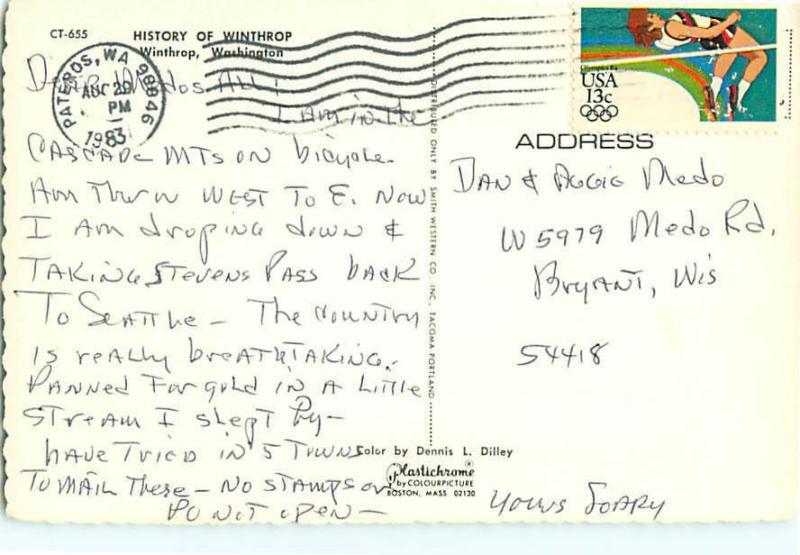 CT-655
HISTORY OF WINTHROP
Winthrop, Washington
PATEROS, WA 98846
AUG 29
PM
1983
Olympics 84
USA
13c
Dear Medos All!
I am in the
CASCADE MTS ON bicycle.
Am Thru WEST To E. Now
I Am droping down &
TAKING STEVENS PASS back
To SEATTLE - The country
is really breATHTAKING.
Panned For gold in A Little
STREAM I slept by -
have TRIED IN 5 TOWNS
To MAIL These - NO STAMPS or
PO NOT OPEN -
DISTRIBUTED ONLY BY SMITH WESTERN CO. INC. TACOMA PORTLAND
Color by Dennis L. Dilley
Plastichrome®
by COLOURPICTURE
BOSTON, MASS. 02130
ADDRESS
DAN & Aggie Medo
W 5979 Medo Rd.
Bryant, Wis
54418
yours